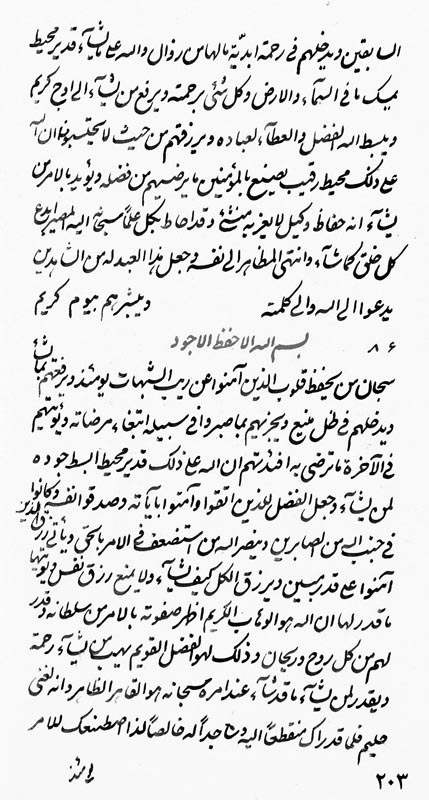 السابقين ويدخلهم في رحمة ابديّة ما لها من زوال والله على ما يشآء قدير محيط
يمسك ما في السمآء والارض وكل شئ برحمته ويرفع من يشآء الى اوج كريم
ويبسط الله الفضل والعطآء لعباده ويرزقهم من حيث لا يحتسبون ان الله
على ذلك محيط رقيب يصنع بالمؤمنين ما يرضيهم من فضله ويؤيد بالامر من
يشآء انه حفاظ وكيل لا يعزب من شئ وقد احاط بكل علماً سبحانه اليه المصير ابدع
كل خلق كما شآء وانتهى المظاهر الى نفسه وجعل هذا العبد له من الشاهدين
يدعوا الى الله والى كلمته ويبشرهم بيوم كريم
٨٦ بسم الله الاحفظ الاجود
سبحان من يحفظ قلوب الذين آمنوا عن ريب الشبهات يومئذ ويرفعهم بما يشآء
ويدخلهم في ظل منيع ويجزيهم بما صبروا في سبيله ابتغاء مرضاته ويؤتيهم
في الآخرة ما ترضى به افئدتهم ان الله على ذلك قدير محيط ابسط جوده
لمن يشآء وجعل الفضل للذين اتقوا وآمنوا بآياته وصدقوا نفسه وكانوا
في جنب الله من الصابرين وينصر الله من استضعف في الامر بالحق ويأتي رزق الذين
آمنوا على قدر مبين ويرزق الكل كيف يشآء ولا يمنع رزق نفس ويؤتيها
ما قدر لها ان الله هو الوهاب الكريم اظهر صفوته بالامر من سلطانه وقدر
لهم من كل روح وريحان وذلك لهو الفضل القويم يهب من يشآء رحمة
ويقدر لمن يشآء ما قد شآء عند امره سبحانه هو القاهر الظاهر وانه لغني
حليم فلما قدراك منقطعاً اليه وساجداً له خالصاً لذا اصطنعك للامر
يومئذ
٢٠٣